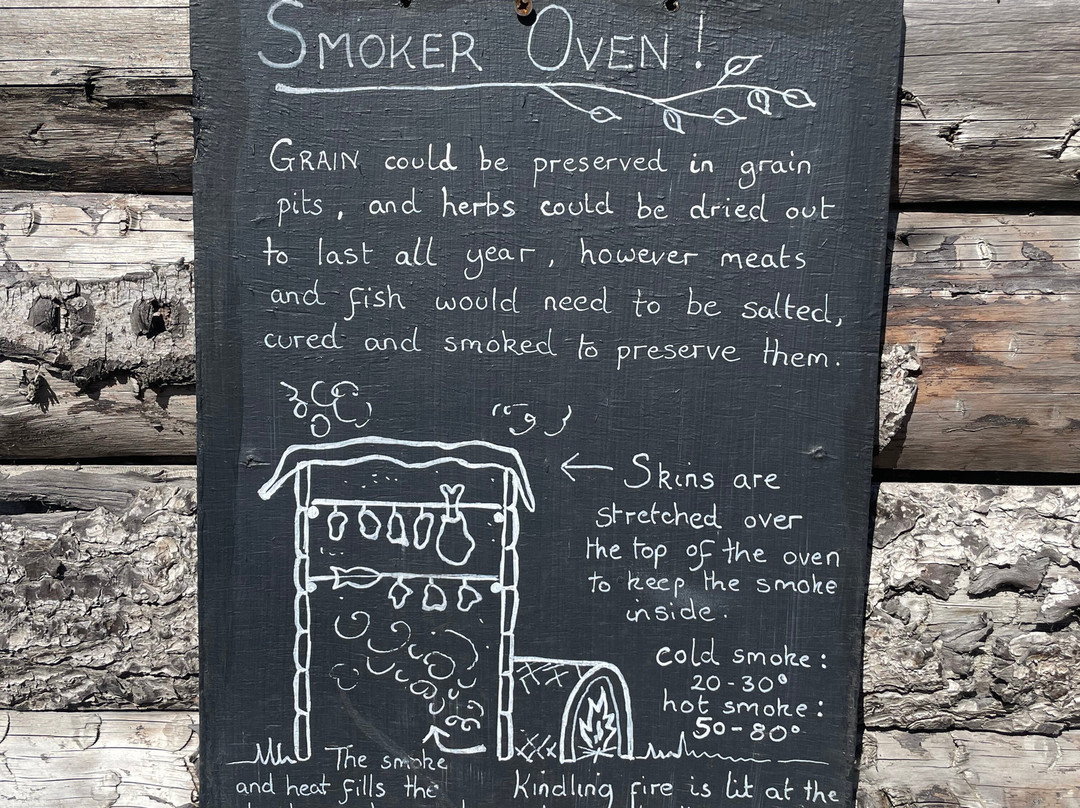 SMOKER OVEN!
GRAIN could be preserved in grain
pits, and herbs could be dried out
to last all year, however meats
and fish would need to be salted,
cured and smoked to preserve them.
Skins are
stretched over
the top of the oven
to keep the smoke
inside.
cold smoke:
20-30°
hot smoke:
50-80°
The smoke
and heat fills the
Kindling fire is lit at the